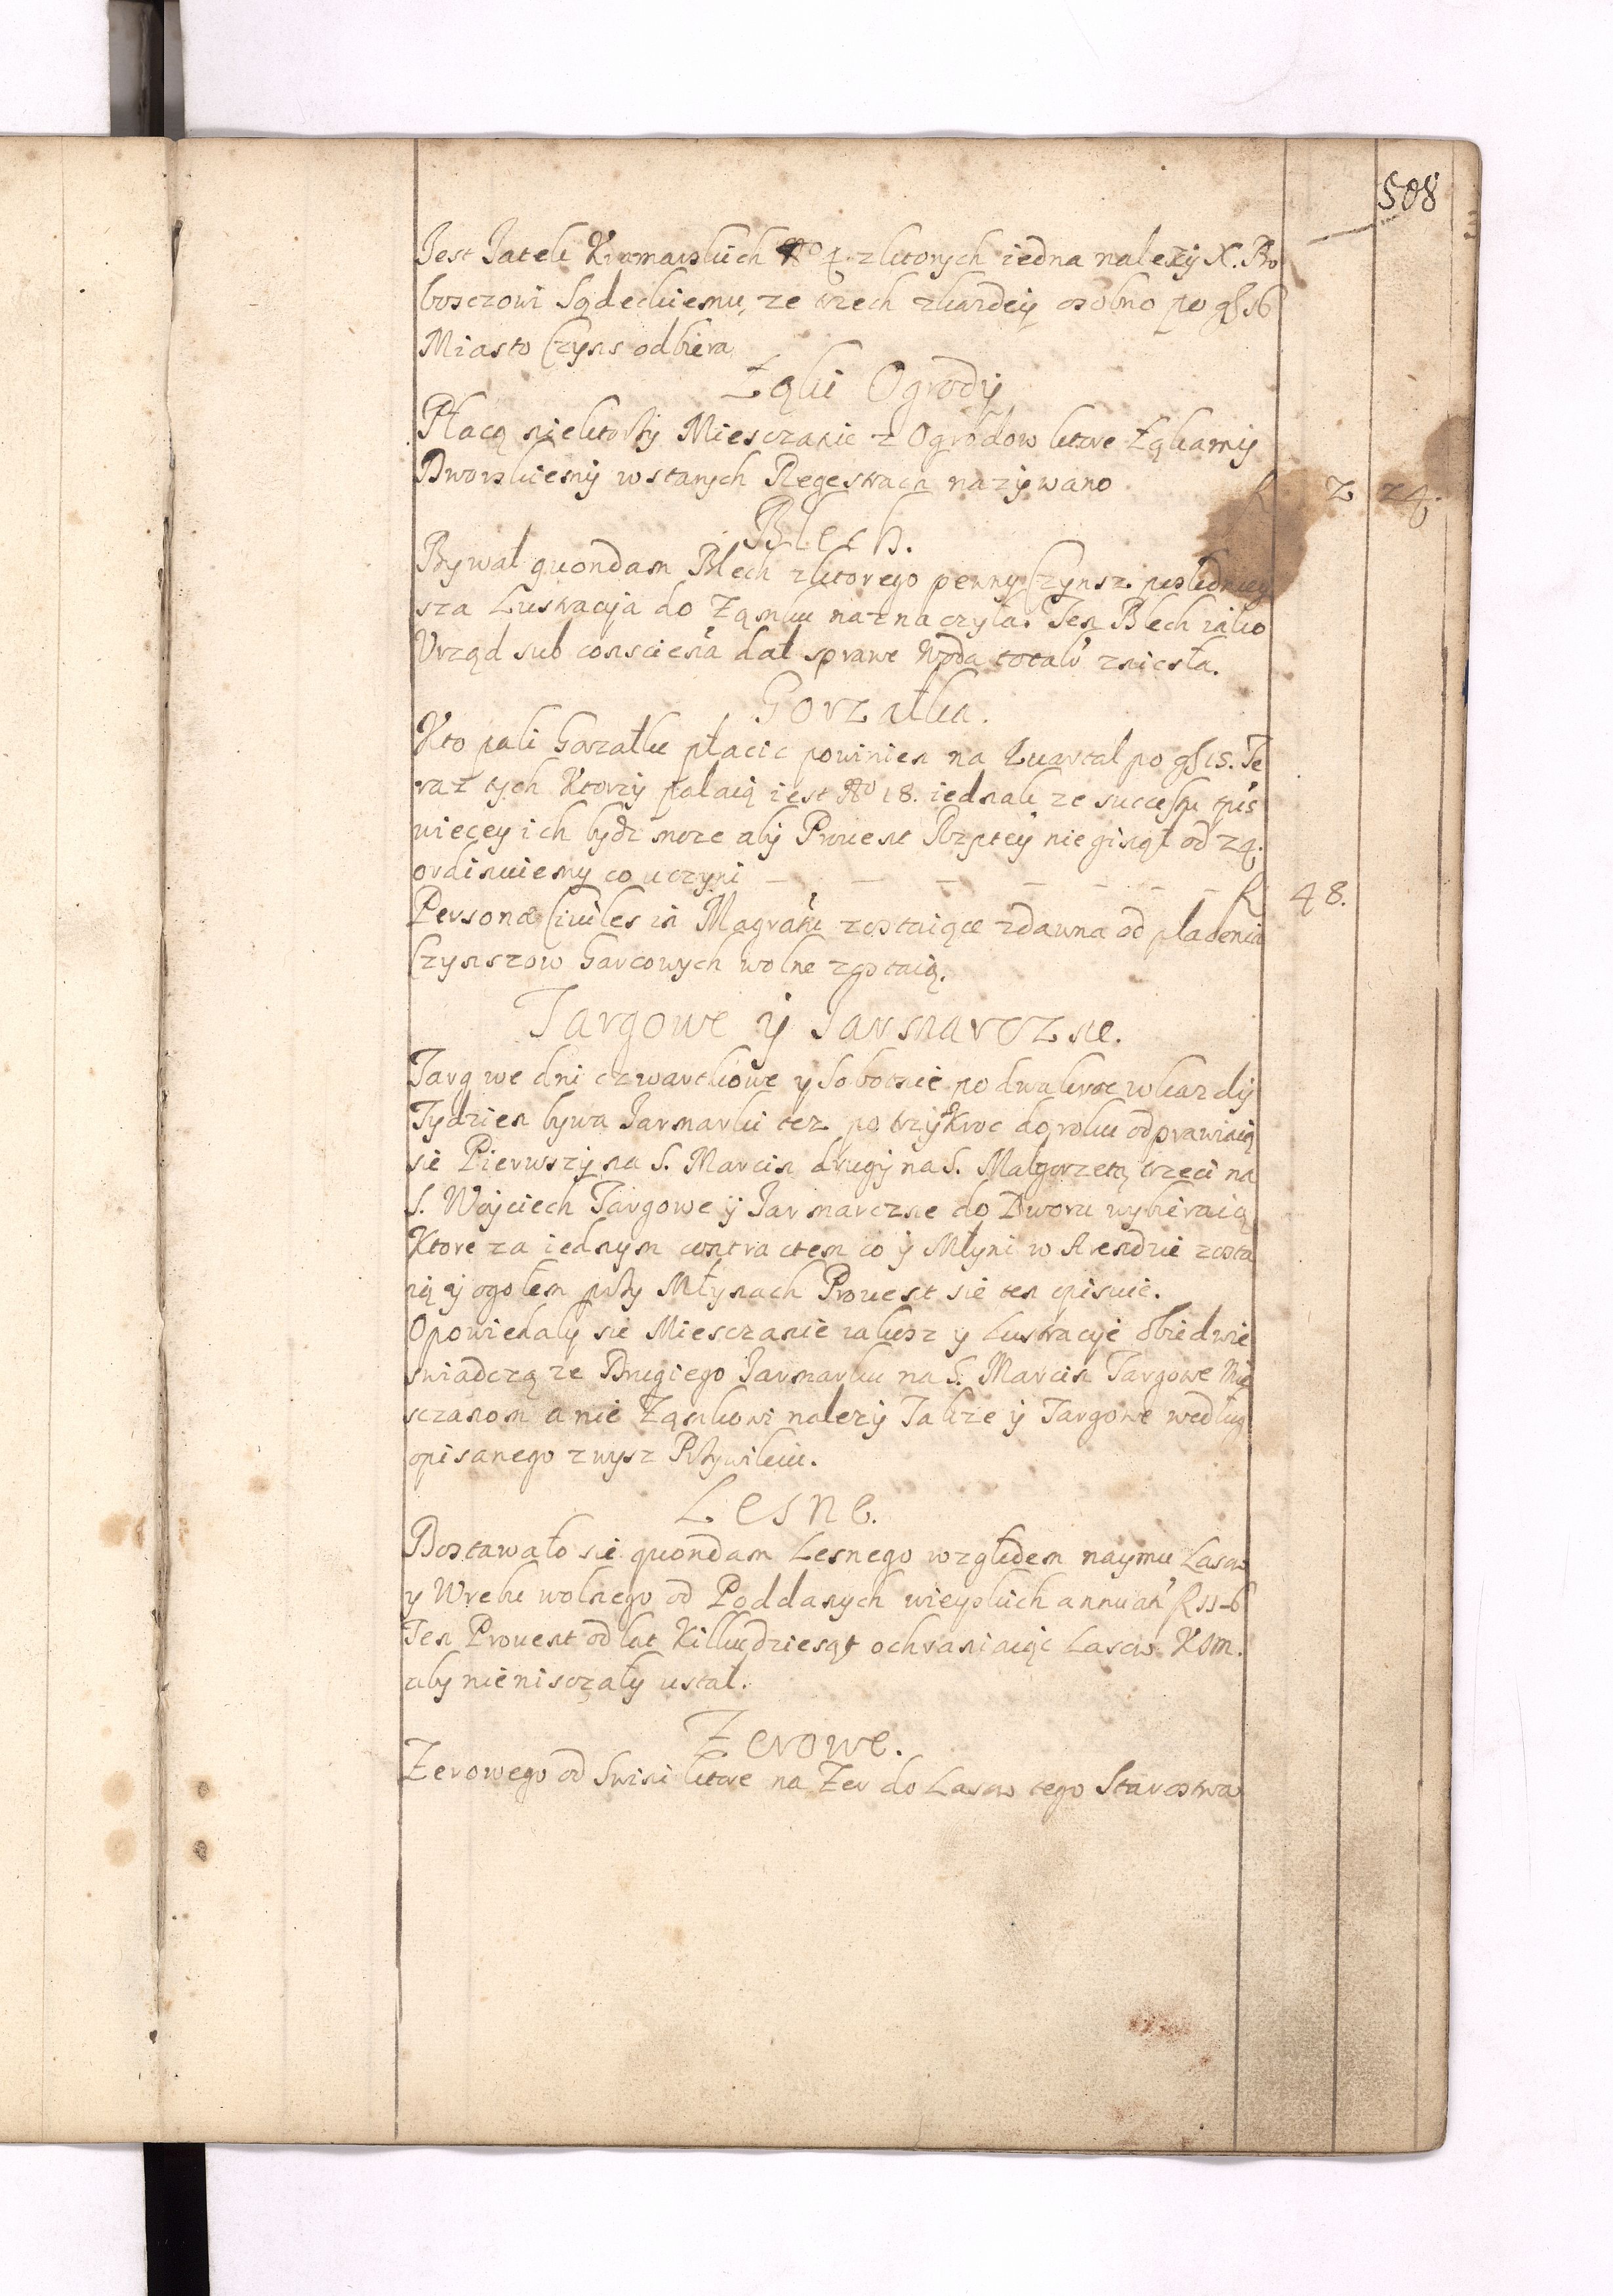 508
Jest Jatek Kramarskich No 4. z ktorych iedna nalezy X. Pro
bosczowi Sądeckiemu, ze trzech z kazdey osobno po gł 16
Miasto Czyns odbiera
Łąki Ogrody
Płacą niektorzy Miesczanie z Ogrodow ktore Łąkami
Dworskiemy w starych Regestrach nazywano R 2 24.
Blech.
Bywał quondam Blech z ktorego pewny Czynsz posledniey
sza Lustracyja do Zamku naznaczyła. Ten Blech iako
Vrząd sub conscieña dał sprawe Woda totalr zniesła.
Gorzałka.
Kto pali Gorzałke płacic powinien na Kwartał po gł 15. Te
raz tych Ktorzy palaią iest No 18. iednak ze successu tpis
wiecey ich bydz moze aby Prouent Rzptey nie ginął od 24.
ordinuiemy co uczyni — — — — — — R 48.
Personæ Ciuiles in Magratu zostaiące zdawna od placenia
Czynszow Garcowych wolne zostaią.
Targowe y Jarmarczne.
Targ we dni czwartkowe y Sobotnie po dwakroc w kazdy
Tydzien bywa Jarmarki tez po trzykroc do roku odprawiaią
sie Pierwszy na S. Marcin drugi na S. Małgorzetę, trzeci na
S. Wojciech Targowe y Jarmarczne do Dworu wybieraią
Ktore za iednym contractem co y Młyni w Arendzie zosta
ią y ogołem przy Młynach Prouent sie ten opisuie.
Opowiedały sie Miesczanie iakosz y Lustracye obiedwie
swiadczą ze Drugiego Jarmarku na S. Marcin Targowe Mie
sczanom a nie Zamkowi nalezy Takze y Targowe według
opisanego zwysz Przywileiu.
Lesne.
Dostawało sie quondam Lesnego wzgledem naymu Lasow
y Wrebu wolnego od Poddanych wieyskich annuatĩ R 11-6
Ten Prouent od lat Kilkudziesąt ochraniaiąc Lasow KJM.
aby nie nisczały ustał.
Zerowe.
Zerowego od Swini ktore na Zer do Lasow tego Starostwa